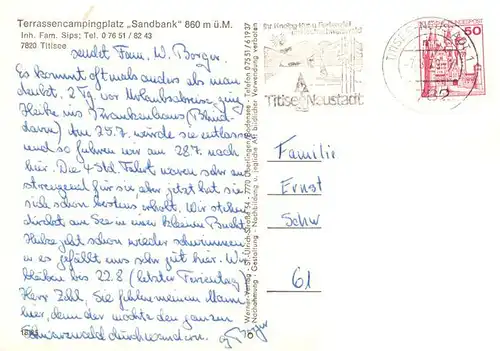 Terrassencampingplatz „Sandbank" 860 m ü.M.
Inh. Fam. Sips; Tel. 0 76 51 / 82 43
7820 Titisee
sendet Fam. W. Borger.
Es kommt oft mals anders als man
denkt. 2 Tg vor Urlaubsbeise ging
Heike ins Krankenhaus (Blind-
darm) Am 25.7. würde sie entlassen
und so fuhren wir am 28.7. nach
hier. Die 4 Std. Fahrt waren sehr an
strengend für sie aber jetzt hat sie
sich schon bestens erholt. Wir stehen
direkt am See in einer kleinen Bucht
Heike geht schon wieder schwimmen
u es gefällt uns sehr gut hier. Wir
bleiben bis 22.8 (letzter Ferientag)
Herr Zohl, Sie fehlen meinem Mann
hier, denn der möchte den ganzen
Schwarzwald durchwandern.
Borger
Werner-Verlag - St.-Ulrich-Straße 54 - 7770 Überlingen/Bodensee - Telefon 0 75 51 / 6 19 37
Nachahmung - Gestaltung - Nachbildung u. jegliche Art bildlicher Verwendung verboten
Titisee Neustadt
TITISEE-NEUSTADT 1
7820
DEUTSCHE BUNDESPOST
50
Familie
Ernst
Schw
61